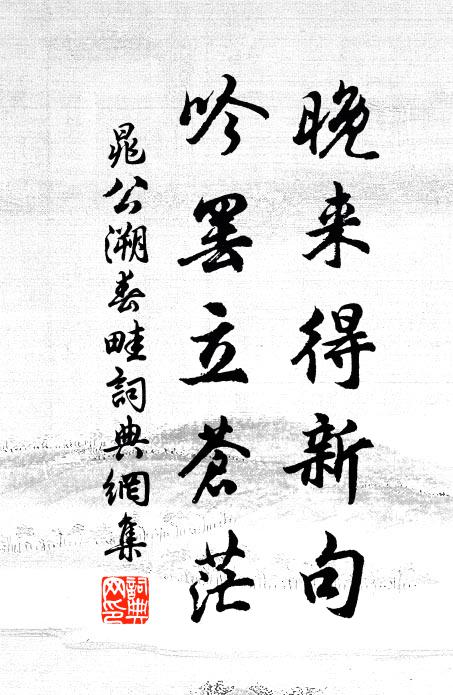 晚来得新句
吟罢立苍茫
晁公溯春畦詞典網集
詞典
网印